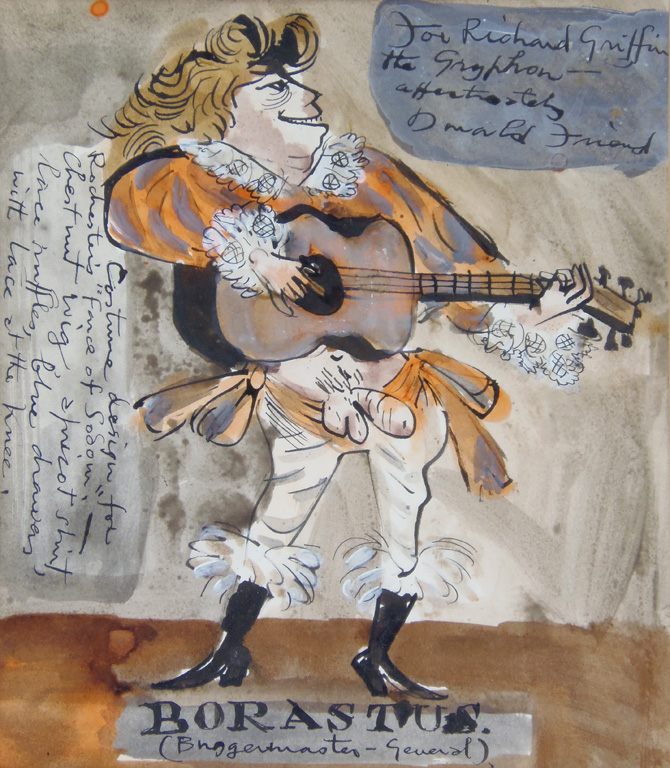 For Richard Griffin
the Gryphon —
affectionately
Donald Friend
Costume design for
Rochester's "Farce of Sodom" —
Chestnut wig, apricot shirt
lace ruffles, blue drawers,
with lace at the knee.
BORASTUS.
(Buggermaster - General)